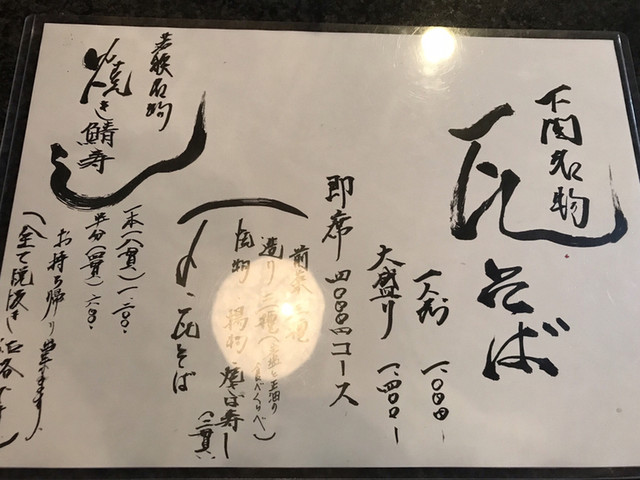 下関名物
瓦そば
一人前 一、〇〇〇ー
大盛り 一、四〇〇ー
即席 四〇〇〇円コース
前菜三種
造り三種
鍋物・揚物・焼さば寿し(二貫)
〆・瓦そば
若狭名物
焼き鯖寿し
一本(八貫)一、二〇〇、
半分(四貫)六〇〇、
お持ち帰り出来ます